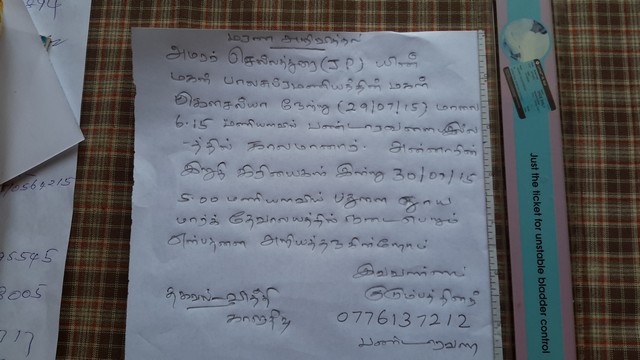 மரண அறிவித்தல்
அமரர் செல்லத்துரை (J.P) யின்
மகன் பாலசுப்ரமணியத்தின் மகள்
கௌசல்யா நேற்று (29/07/15) மாலை
6.15 மணியளவில் பண்டாரவளை இல்ல
-த்தில் காலமானார். அன்னாரின்
இறுதி கிரியைகள் இன்று 30/07/15
5.00 மணியளவில் பதுளை தூய
மார்க் தேவாலயத்தில் நடைபெறும்
என்பதனை அறியத்தருகின்றோம்
இவ்வண்ணம்
தகவல் -
குடும்பத்தினர்
0776137212
பண்டாரவளை
Just the ticket for unstable bladder control
0564215
5545
8005